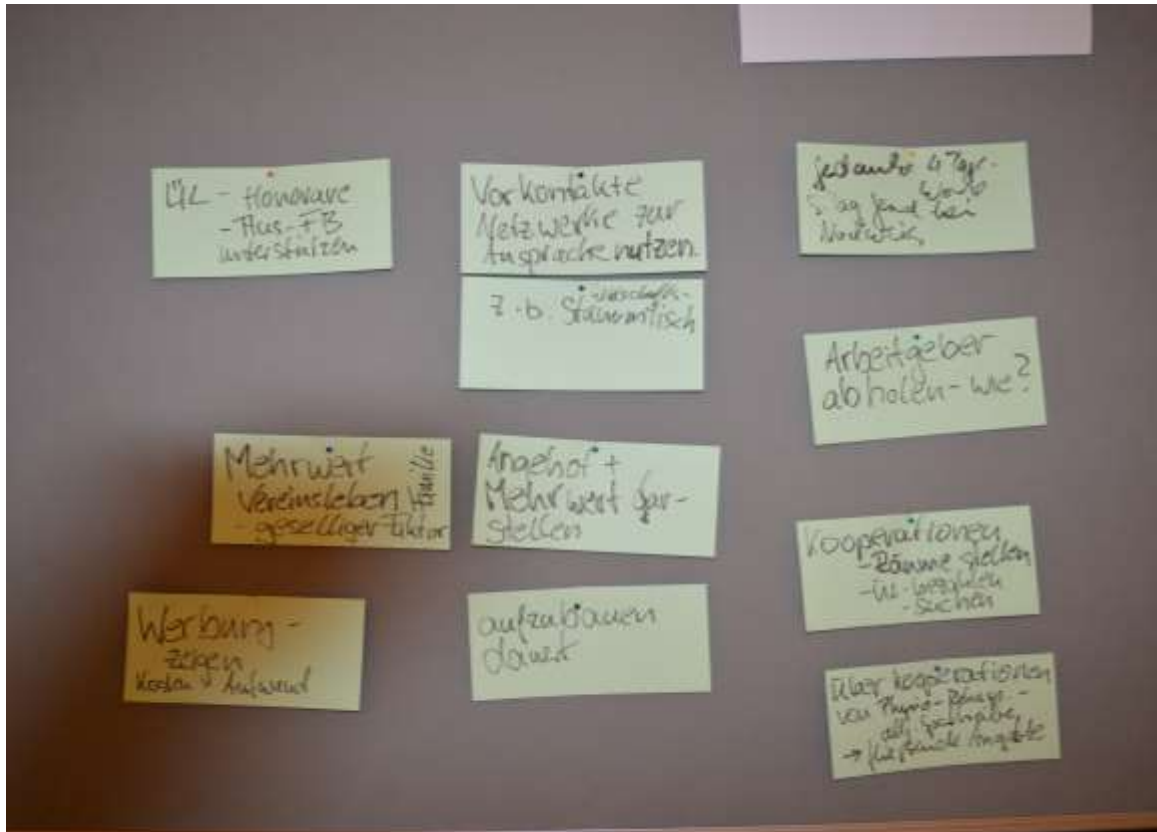 ÜL - Honorare
- Aus-FB
unterstützen
Vorkontakte
Netzwerke zur
Ansprache nutzen.
z.b. Stammtisch
4 Tage-
bei
Arbeitgeber
abholen - wie?
Mehrwert
Vereinsleben Familie
- geselliger Faktor
Angebot +
Mehrwert dar-
stellen
Kooperationen
- Räume stellen
- ÜL - bezahlen
- suchen
Werbung -
zeigen
Kosten Aufwand
aufzubauen
dauert
über Kooperationen
von Physio-
→